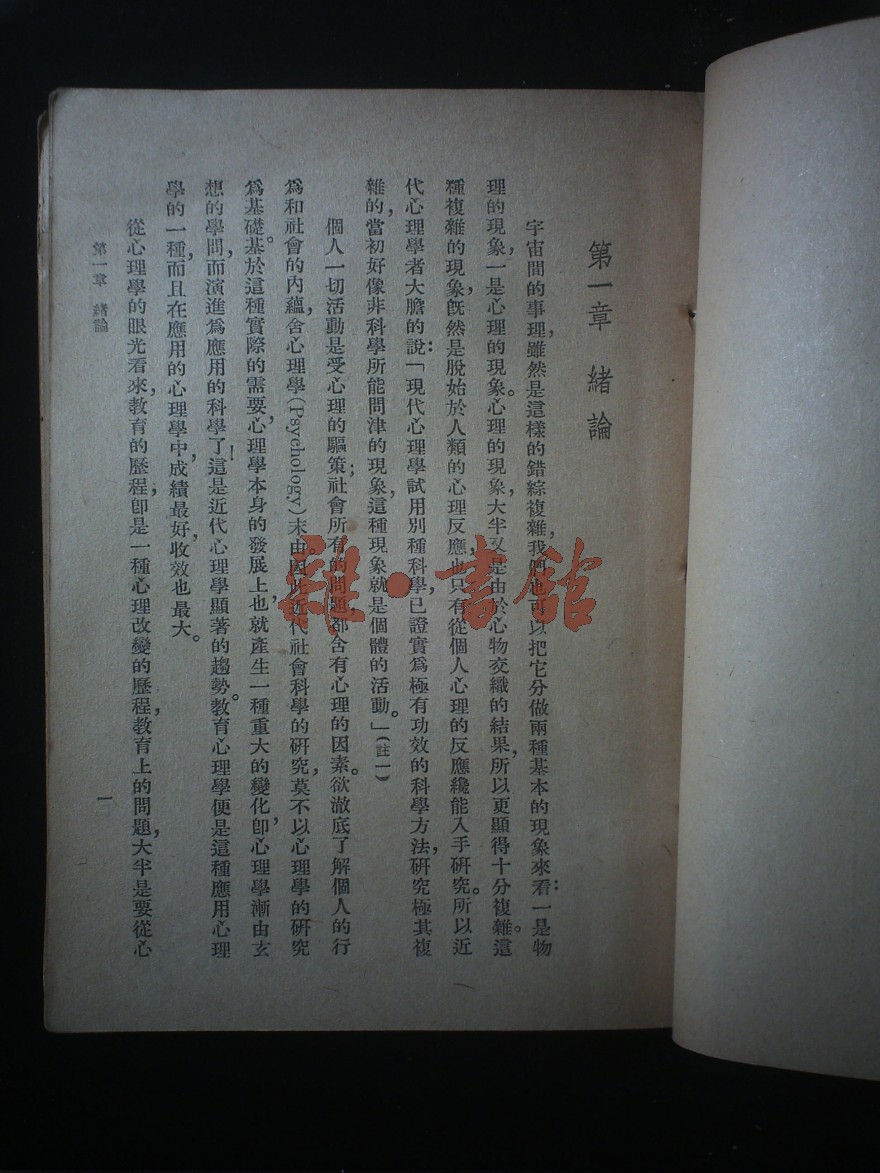 第一章　緒論
宇宙間的事理，雖然是這樣的錯綜複雜，我們也可以把它分做兩種基本的現象來看：一是物
理的現象，一是心理的現象。心理的現象，大半又是由於心物交織的結果，所以更顯得十分複雜。這
種複雜的現象旣然是脫始於人類的心理反應，也只有從個人心理的反應纔能入手硏究。所以近
代心理學者大膽的說：「現代心理學試用別種科學，已證實爲極有功效的科學方法，硏究極其複
雜的，當初好像非科學所能問津的現象，這種現象就是個體的活動。」（註一）
個人一切活動是受心理的驅策；社會所有的問題，都含有心理的因素。欲澈底了解個人的行
爲和社會的內蘊，舍心理學(Psychology)末由。因此近代社會科學的硏究，莫不以心理學的硏究
爲基礎。基於這種實際的需要，心理學本身的發展上，也就產生一種重大的變化，卽心理學漸由玄
想的學問，而演進爲應用的科學了！這是近代心理學顯著的趨勢。敎育心理學便是這種應用心理
學的一種，而且在應用的心理學中，成績最好，收效也最大。
從心理學的眼光看來，敎育的歷程，卽是一種心理改變的歷程，敎育上的問題，大半是要從心
第一章　緒論
一
雜·書館